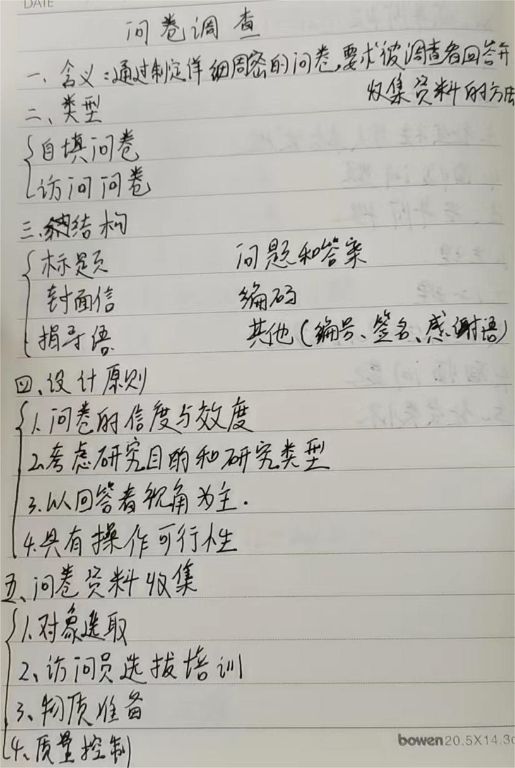 DATE
问卷调查
一、含义:通过制定详细周密的问卷,要求被调查者回答并
收集资料的方法
二、类型
自填问卷
访问问卷
三、结构
标题 问题和答案
封面信 编码
指导语 其他(编号、签名、感谢语)
四、设计原则
1.问卷的信度与效度
2.考虑研究目的和研究类型
3.以回答者视角为主.
4.具有操作可行性
五、问卷资料收集
1.对象选取
2、访问员选拔培训
3、物质准备
4、质量控制
bowen 20.5X14.3c